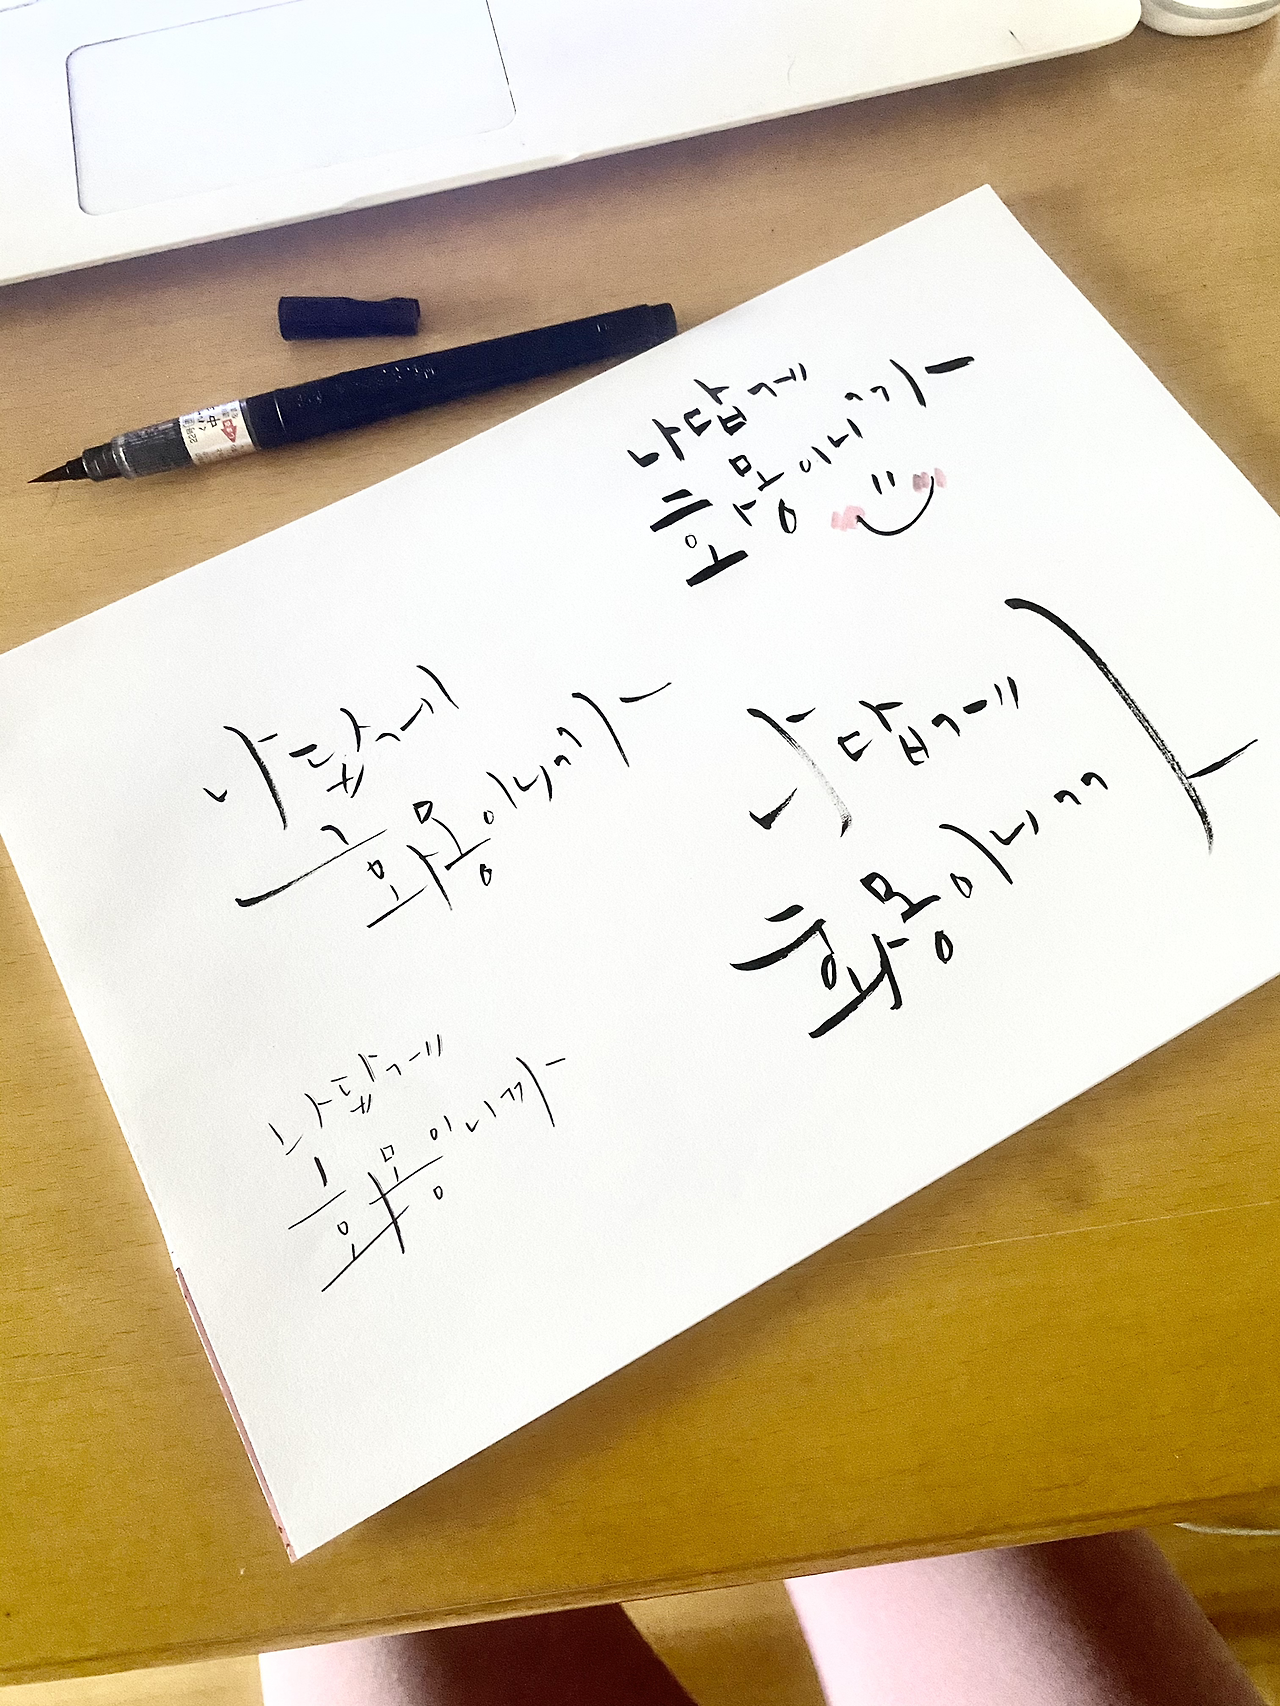 나답게
화몽이니까
나답게
화몽이니까
나답게
화몽이니까
나답게
화몽이니까